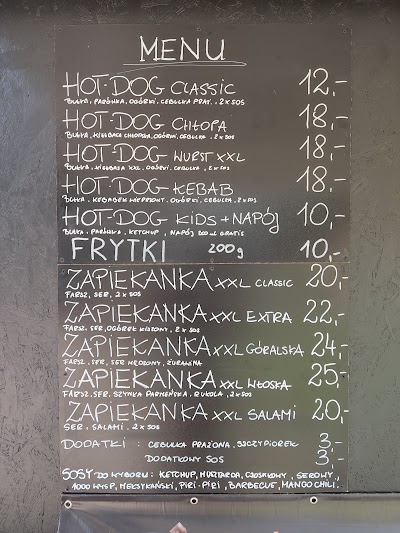 MENU
HOT-DOG CLASSIC 12,-
BUŁKA, PARÓWKA, OGÓRKI, CEBULKA PRAŻ. 2x SOS
HOT-DOG CHŁOPA 18,-
BUŁKA, KIEŁBASA CHŁOPSKA, OGÓRKI, CEBULKA, 2x SOS
HOT-DOG WURST XXL 18,-
BUŁKA, KIEŁBASA XXL, OGÓRKI, CEBULKA, 2x SOS
HOT-DOG KEBAB 18,-
BUŁKA, KEBABEM WIEPRZOWY, OGÓRKI, CEBULKA, 2x SOS
HOT-DOG KIDS + NAPÓJ 10,-
BUŁKA, PARÓWKA, KETCHUP, NAPÓJ 200 ml GRATIS
FRYTKI 200g 10,-
ZAPIEKANKA XXL CLASSIC 20,-
FARSZ, SER, 2x SOS
ZAPIEKANKA XXL EXTRA 22,-
FARSZ, SER, OGÓREK KISZONY, 2x SOS
ZAPIEKANKA XXL GÓRALSKA 24,-
FARSZ, SER, SER WĘDZONY, ŻURAWINA
ZAPIEKANKA XXL WŁOSKA 25,-
FARSZ, SER, SZYNKA PARMEŃSKA, RUKOLA, 2x SOS
ZAPIEKANKA XXL SALAMI 20,-
SER, SALAMI, 2x SOS
DODATKI: CEBULKA PRAŻONA, SZCZYPIOREK 3,-
DODATKOWY SOS 3,-
SOSY DO WYBORU: KETCHUP, MUSZTARDA, CZOSNKOWY, SEROWY,
1000 WYSP, MEKSYKAŃSKI, PIRI-PIRI, BARBECUE, MANGO CHILI